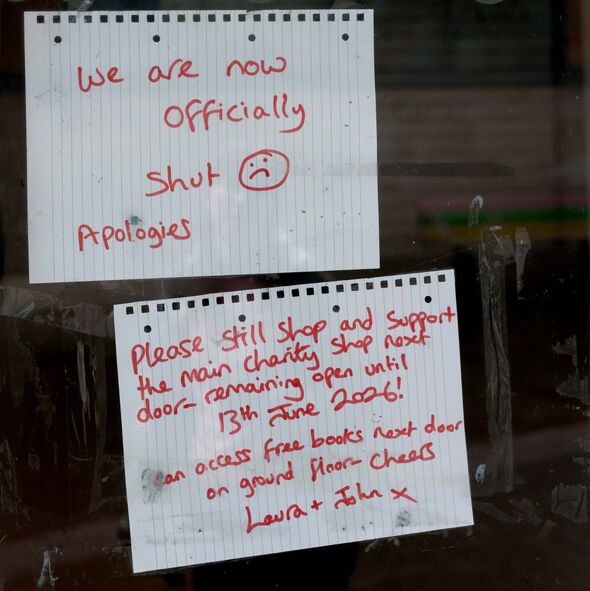 We are now
Officially
Shut
Apologies
Please Still Shop and Support
the main Charity Shop next
door- remaining open until
13th June 2026!
can access free books next door
on ground floor- Cheers
Laura + John x